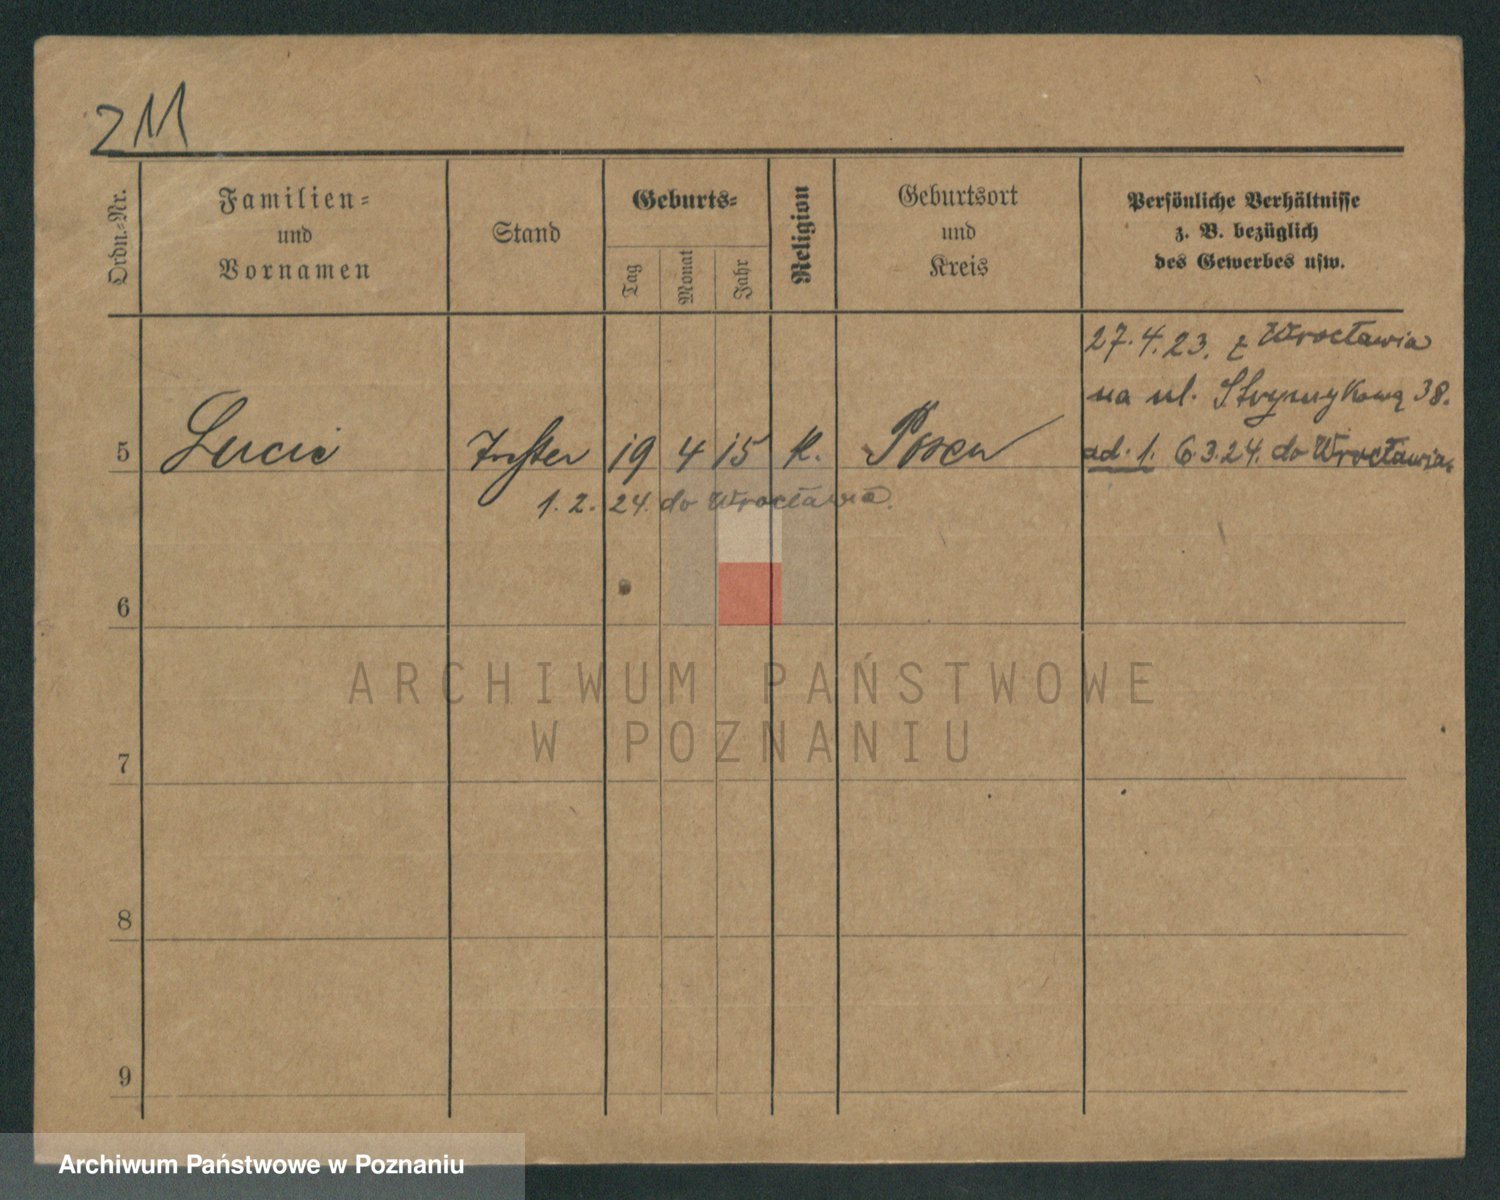 211
Ordn.-Nr.
Familien-
und
Vornamen
Stand
Geburts-
Tag
Monat
Jahr
Religion
Geburtsort
und
Kreis
Persönliche Verhältnisse
z. B. bezüglich
des Gewerbes usw.
27.4.23. z Wrocławia
na ul. Strumykową 38.
5 Lucie 19 4 15 K. Posen
ad. 1. 6.3.24. do Wrocławia
1.2.24. do Wrocławia.
6
7
8
9
ARCHIWUM PAŃSTWOWE
W POZNANIU
Archiwum Państwowe w Poznaniu